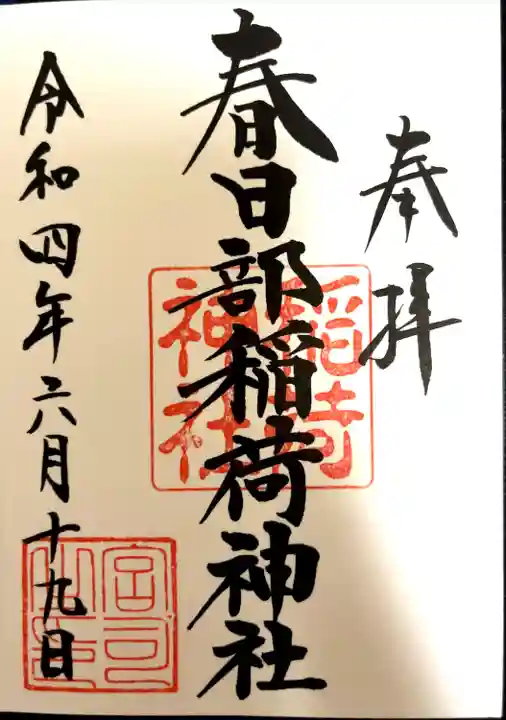 奉拝
春日部稲荷神社
稲荷神社
令和四年六月十九日
宮司之印